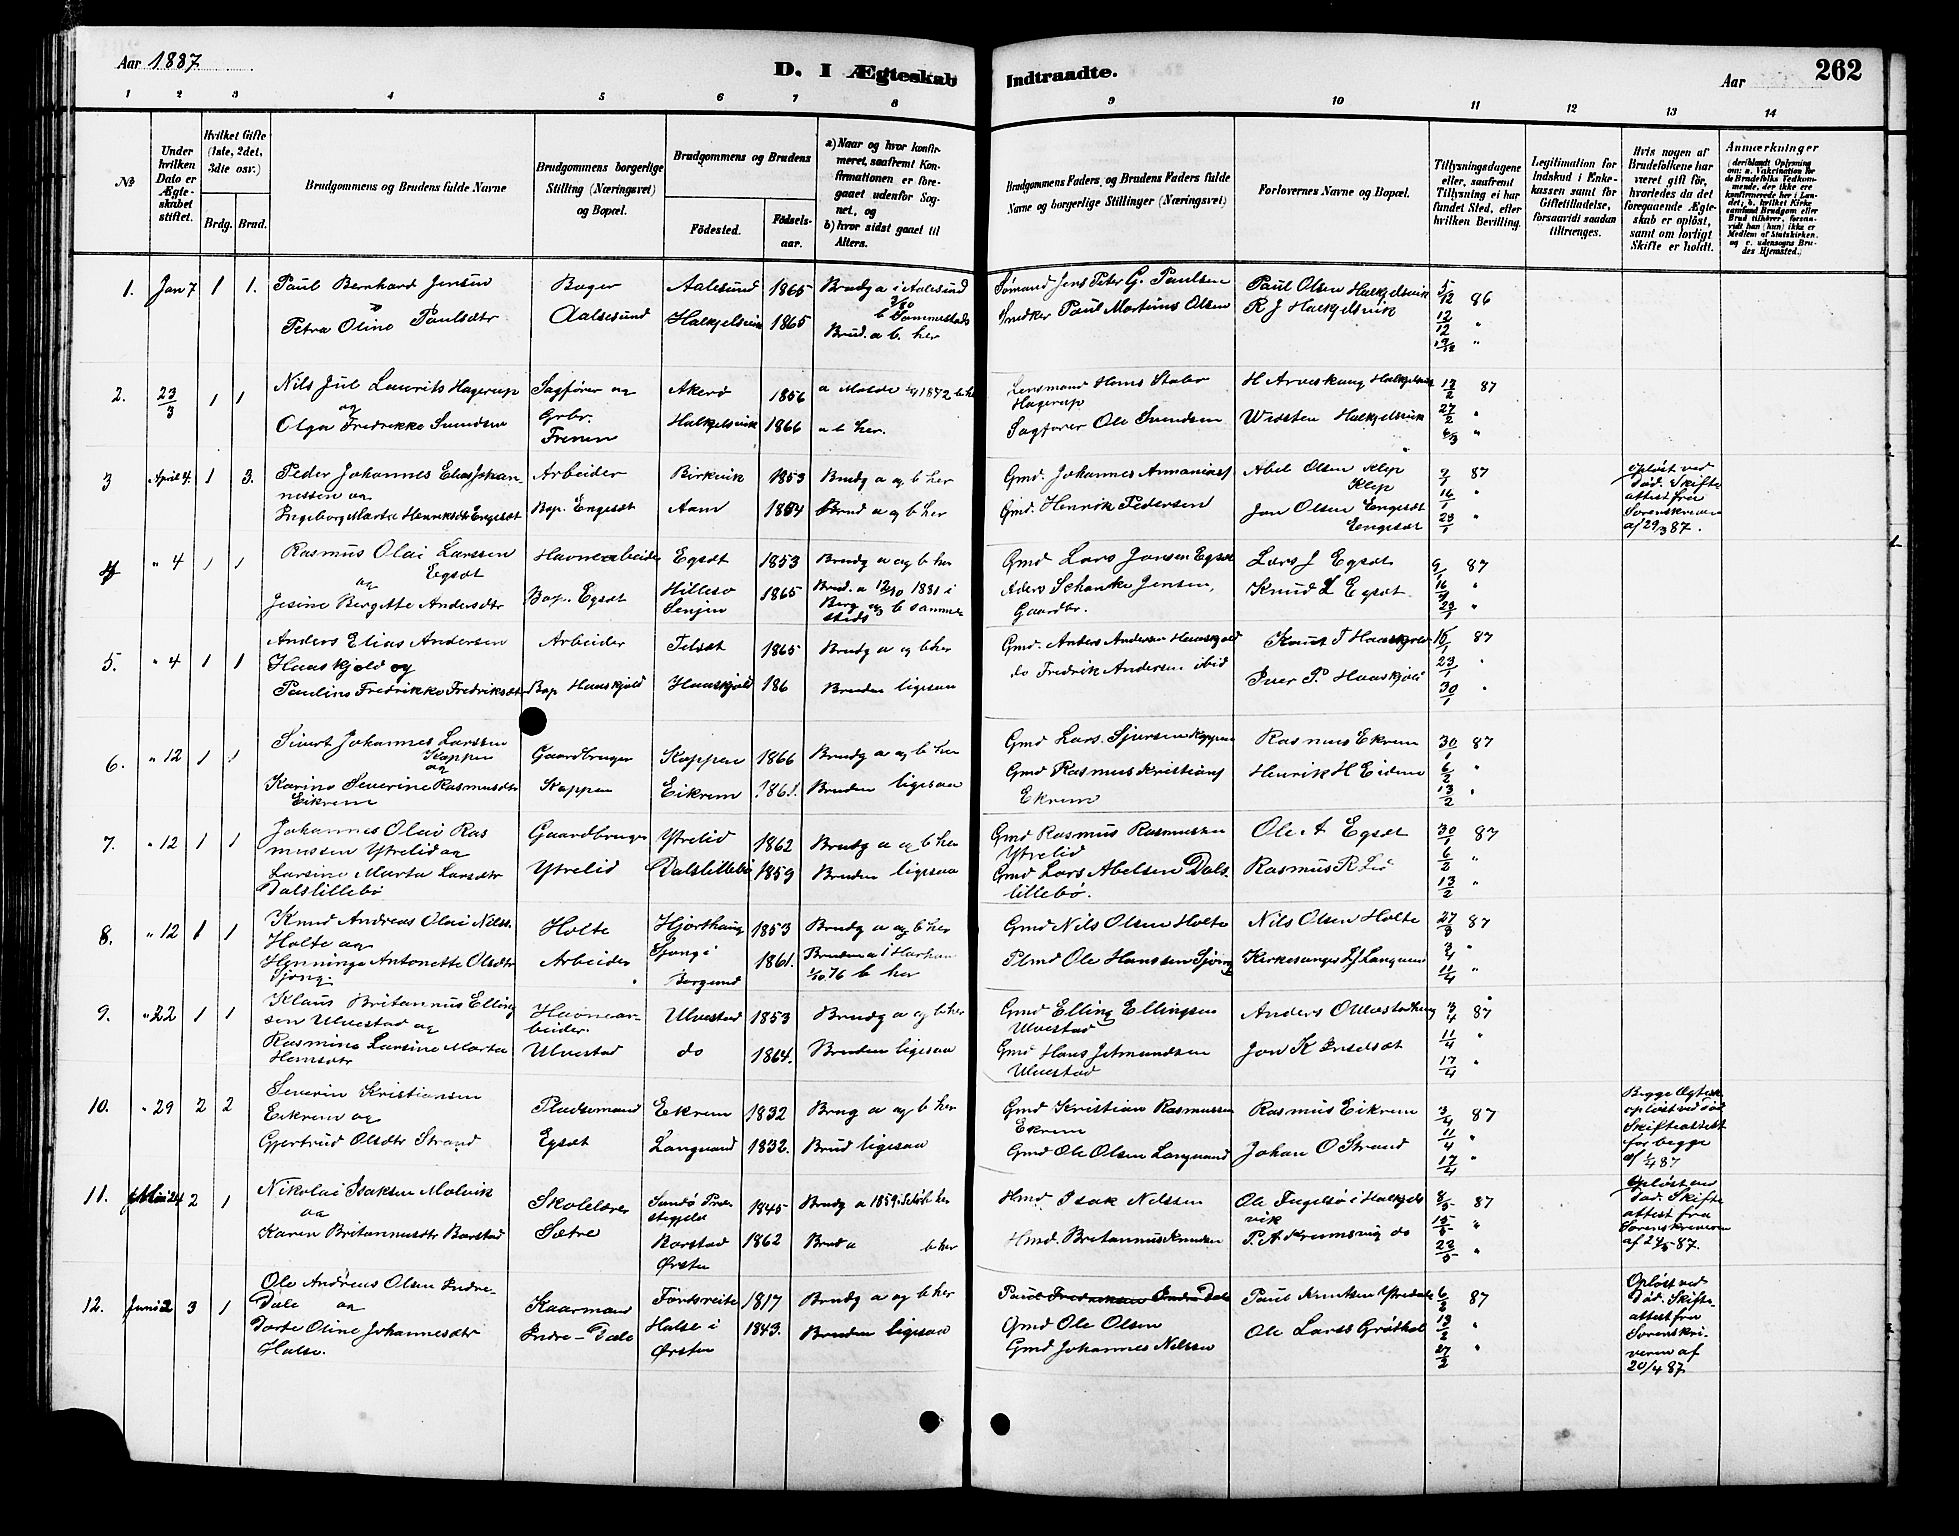 Aar 1887
D. I Ægteskab Indtraadte.
Aar
262
1 2 3 4 5 6 7 8 9 10 11 12 13 14
№
Under hvilken Dato er Ægteskabet stiftet.
Hvilket Gifte (1ste, 2det, 3die osv.)
Brdg. Brud.
Brudgommens og Brudens fulde Navne
Brudgommens borgerlige Stilling (Næringsvei) og Bopæl.
Brudgommens og Brudens
Fødested.
Fødselsaar.
a) Naar og hvor konfirmeret, saafremt Konfirmationen er foregaaet udenfor Sognet, og
b) hvor sidst gaaet til Alters.
Brudgommens Faders og Brudens Faders fulde Navne og borgerlige Stillinger (Næringsvei)
Forlovernes Navne og Bopæl.
Tillysningsdagene eller, saafremt Tillysning ei har fundet Sted, efter hvilken Bevilling.
Legitimation for Indskud i Enkekassen samt for Giftetilladelse, forsaavidt saadan tiltrænges.
Hvis nogen af Brudefolkene har været gift før, hvorledes da det foregaaende Ægteskab er opløst, samt om lovligt Skifte er holdt.
Anmærkninger
1. Jan 7 1 1. Paul Bernhard Jensen Bager Aalesund 1865 Brudg a i Aalesund Sømand Jens Peter G. Paulsen Paul Olsen Halkjelsvik 5/12 86
Petra Oline Paulsdtr Aalesund Halkjelsvik 1865 b Sammesteds Snedker Paul Martinus Olsen R J Halkjelsvik 12/12 "
Brud. a b. her 19/12 "
2. 23/3 1 1 Nils Jul Laurits Hagerup Sagfører og Akerø 1856 a Molde 1872 b her Lensmand Hans Stabo H Arveskaug Halkjelsvik 13/2 87
og Grbr. Hagerup 27/2 "
Olga Fredrikke Svendsen Frenen Halkjelsvik 1866 a b her. Sagfører Ole Svendsen Widsten Halkjelsvik 6/3 "
3 April 4. 1 3. Peder Johannes Elias Johan- Arbeider Birkvik 1853 Brudg a og b her Gmd. Johannes Abel Olsen Klep 9/1 87 opløst ved
nessen og Klep 16/1 " Død. Skifte
Ingeborg Marta Henriksdtr Engesæt Bop. Engesæt Aam 1854 Brud a og b her Gmd. Henrik Pedersen Jon Olsen Engesæt 23/1 " attest fra
Engesæt Sorenskriveren
af 29/3 87.
4 " 4 1 1 Rasmus Olai Larssen Havnearbeider Egsæt 1853 Brudg a og b her Gmd Lars Jansen Egsæt Lars J Egsæt 9/1 87
og Egsæt Hillesø Brud. a 12/10 1881 i 16/1 "
Jesine Bergitte Andersdtr Bop. Egsæt Senjen 1865 Berg og b sammesteds Anders Schanke Jensen, Gaardbr. Knud L Egsæt 23/1 "
5. " 4 1 1 Anders Elias Andersen Arbeider Telsæt 1865 Brudg a og b her Gmd. Anders Andersen Haaskjold Knut T Haaskjold 16/1 87
Haaskjold og 23/1 "
Pauline Fredrikke Fredriksdtr Bop Haaskjold Haaskjold 186 Bruden ligesaa do Fredrik Andersen ibid Iver P. Haaskjold 30/1 "
6. " 12 1 1 Sivert Johannes Larssen Gaardbruger Koppen 1866 Brudg a og b her Gmd Lars Sjursen Koppen Rasmus Ekrem 30/1 87
Koppen og 6/2 "
Karine Severine Rasmusdtr Eikrem Koppen Eikrem 1861. Bruden ligesaa Gmd Rasmus Kristians Ekrem Henrik H Eidem 13/2 "
7. " 12 1 1 Johannes Olai Ras Gaardbruger Ytrelid 1862 Brudg a og b her Gmd Rasmus Rasmussen Ytrelid Ole A Egsæt 30/1 87
mussen Ytrelid og 6/2 "
Larsine Marta Larsdtr Ytrelid Dalslillebø 1859 Bruden ligesaa Gmd Lars Abelsen Dals- Rasmus R Liø 13/2 "
Dalslillebø lillebø.
8. " 12 1 1 Knud Andreas Olai Nilss. Holte Hjorthaug 1853 Brudg a og b her Gmd Nils Olsen Holte Nils Olsen Holte 27/3 87
Holte og 3/4 "
Henninge Antonette Olsdtr Arbeider Sjong i 1861. Bruden a i Harham Plmd Ole Hanssen Sjong Kirkesanger Langnæs 11/4 "
Sjong Borgund 1/10 76 b her
9. " 22 1 1 Klaus Britannus Elling Havnear- Ulvestad 1853 Brudg a og b her Gmd Elling Ellingsen Ulvestad Anders O Ulvestad 3/4 87
sen Ulvestad og beider. 11/4 "
Rasmine Larsine Marta Hansdtr Ulvestad do 1864. Bruden ligesaa Gmd Hans Jetmundsen Ulvestad Jon K Indsæt 17/4 "
10. " 29 2 2 Severin Kristiansen Pladsemand Ekrem 1832 Brug a og b her Gmd Kristian Rasmussen Ekrem Rasmus Eikrem 3/4 87 Begge Ægtesk
Eikrem og 11/4 " opløst ved død
Gjertrud Olsdtr Strand Egsæt Langvand 1832. Brud ligesaa Gmd Ole Olsen Langvand Johan O Strand 17/4 " Skifteattest
for begge
af 1/4 87
11. Mai 24 2 1 Nikolai Isaksen Molvik Skolelærer Sandø Præstegjeld 1845 Brudg a 1859 b her Hmd Isak Nelssen Ole Fugelsø i Halkjelsvik 8/5 87 Opløst ved
og 15/5 " Død. Skifte
Karen Britannusdtr Barstad Sætre Barstad Ørsten 1862 Brud a b her Hmd. Britannus Knudsen P. A Krumsvig do 22/5 " attest fra
Sorenskriveren
af 24/5 87.
12. Juni 2 3 1 Ole Andreas Olsen Indre- Kaarmand Førdsreite 1817 Brudg a og b her Paul Fredriksen Indre Dale Paul Knutsen Ytredale 6/2 87 Opløst ved
Dale og Gmd Ole Olsen 13/2 " Død. Skifte-
Dorte Oline Johannesdtr Indre-Dale Halse i Ørsten 1843. Bruden ligesaa Gmd Johannes Nilssen Ole Larss Grøthol 27/2 " attest fra
Halse. Sorenskri-
veren af
20/4 87